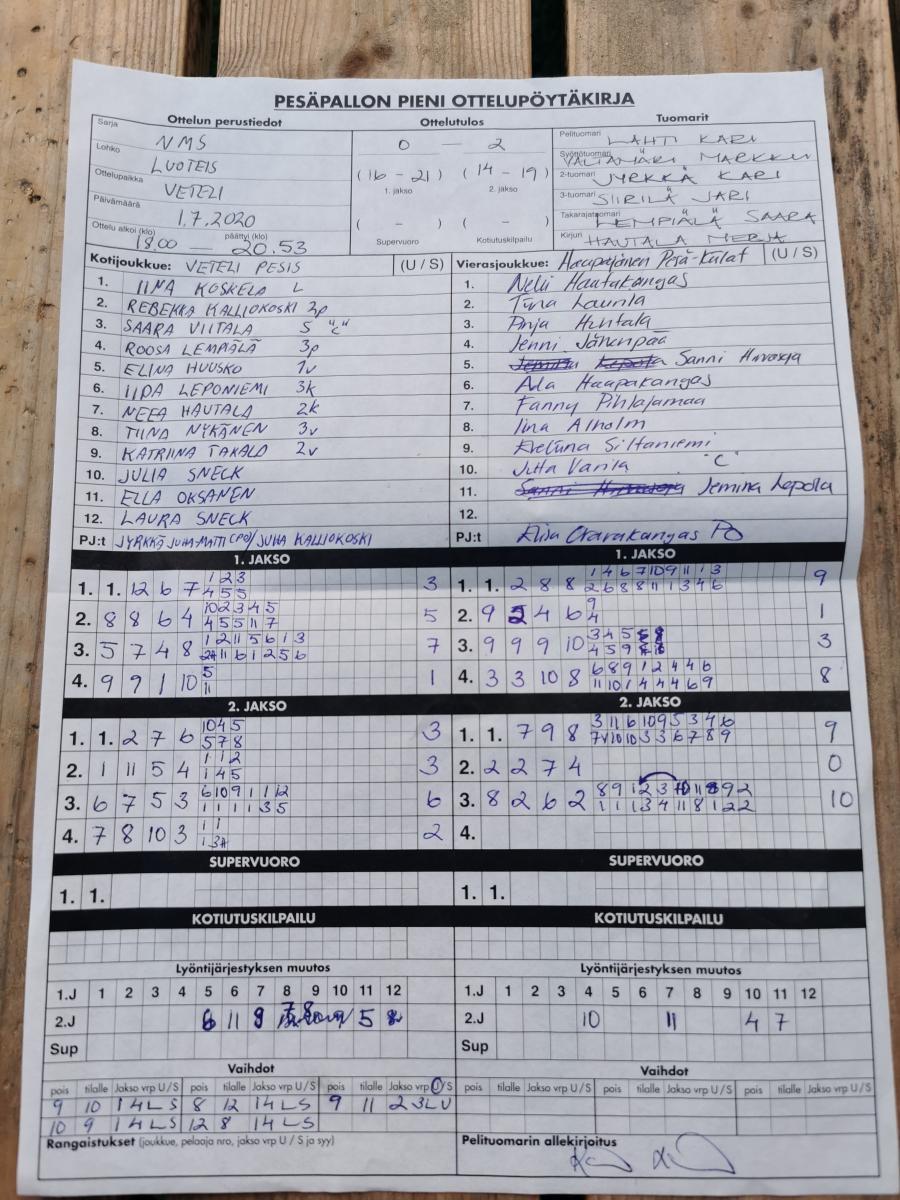 PESÄPALLON PIENI OTTELUPÖYTÄKIRJA
Ottelun perustiedot Ottelutulos Tuomarit
Sarja NMS
Lohko LUOTEIS
Ottelupaikka VETELI
Päivämäärä 1.7.2020
Ottelu alkoi (klo) 18.00 — päättyi (klo) 20.53
0 — 2
(16 - 21) (14 - 19)
1. jakso 2. jakso
( - ) ( - )
Supervuoro Kotiutuskilpailu
Pelituomari LAHTI KARI
Syöttötuomari VÄLIMÄKI MARKKU
2-tuomari JYRKKÄ KARI
3-tuomari SIIRILÄ JARI
Takarajatuomari LEMPIÄLÄ SAARA
Kirjuri HAUTALA MERJA
Kotijoukkue: VETELI PESIS (U / S)
1. IINA KOSKELA L
2. REBEKKA KALLIOKOSKI 2p
3. SAARA VIITALA S "C"
4. ROOSA LEMPIÄLÄ 3p
5. ELINA HUUSKO 1v
6. IIDA LEPONIEMI 3k
7. NEEA HAUTALA 2k
8. TIINA NYKÄNEN 3v
9. KATRIINA TAKALO 2v
10. JULIA SNECK
11. ELLA OKSANEN
12. LAURA SNECK
PJ:t JYRKKÄ JUHA-MATTI (PO) / JUHA KALLIOKOSKI
Vierasjoukkue: Haapajärven Pesä-Kiilat (U / S)
1. Nelli Hautakangas
2. Tiina Laurila
3. Pinja Huntala
4. Jenni Jähenpää
5. Sanni
6. Ada Haapakangas
7. Fanny Pihlajamaa
8. Iina Alholm
9. Eveliina Siltaniemi
10. Jutta Varila "C"
11. Jemina Lepola
12.
PJ:t Oravakangas PO
1. JAKSO
1. 1. 12 6 7 1 2 3 3
4 5 5
2. 8 8 6 4 10 2 3 4 5 5
4 5 5 11 7
3. 5 7 4 8 1 2 11 5 6 1 3 7
11 6 1 2 5 6
4. 9 9 1 10 5 1
11
1. JAKSO
1. 1. 2 8 8 1 4 6 7 10 9 11 1 3 9
2 6 8 8 11 1 3 4 6
2. 9 2 4 6 9 1
4
3. 9 9 9 10 3 4 5 3
4 5 9
4. 3 3 10 8 6 8 9 1 2 4 4 6 8
11 10 1 4 4 4 6 9
2. JAKSO
1. 1. 2 7 6 10 4 5 3
5 7 8
2. 1 11 5 4 1 1 2 3
1 4 5
3. 6 7 5 3 6 10 9 1 1 12 6
1 1 1 1 3 5
4. 7 8 10 3 1 1 2
1 3
2. JAKSO
1. 1. 7 9 8 3 11 6 10 9 5 3 4 6 9
10 10 3 3 6 7 8 9
2. 2 2 7 4 0
3. 8 2 6 2 8 9 1 2 3 10 11 9 2 10
1 1 1 3 4 11 8 1 2 2
4.
SUPERVUORO SUPERVUORO
1. 1. 1. 1.
KOTIUTUSKILPAILU KOTIUTUSKILPAILU
Lyöntijärjestyksen muutos
1.J 1 2 3 4 5 6 7 8 9 10 11 12
2.J 6 11 9 7 8 5
Sup
Lyöntijärjestyksen muutos
1.J 1 2 3 4 5 6 7 8 9 10 11 12
2.J 10 11 4 7
Sup
Vaihdot Vaihdot
pois tilalle Jakso vrp U / S pois tilalle Jakso vrp U / S pois tilalle Jakso vrp U/S
9 10 1 4 L S 8 12 1 4 L S 9 11 2 3 L U
10 9 1 4 L S 12 8 1 4 L S
pois tilalle Jakso vrp U / S pois tilalle Jakso vrp U / S pois tilalle Jakso vrp U / S
Rangaistukset (joukkue, pelaaja nro, jakso vrp U / S ja syy)
Pelituomarin allekirjoitus